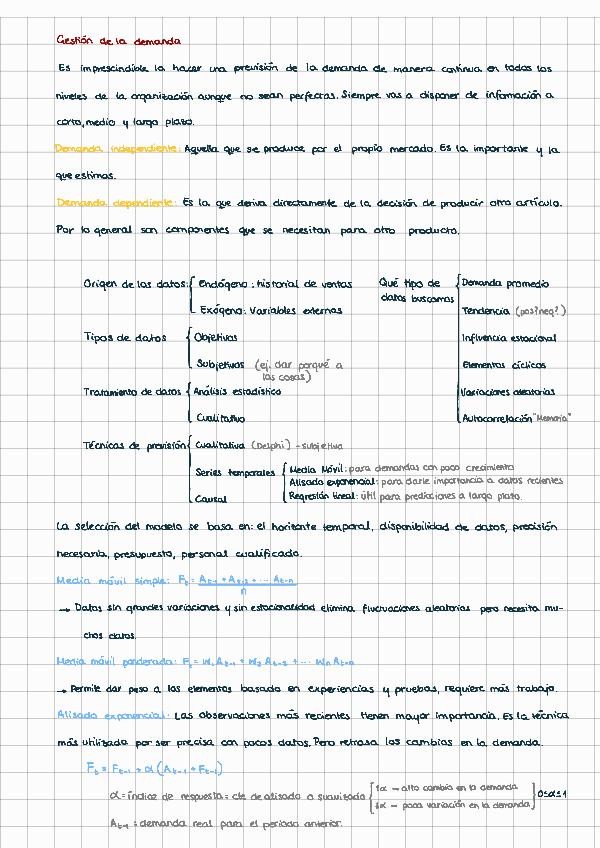 Gestión de la demanda
Es imprescindible la hacer una previsión de la demanda de manera continua en todos los
niveles de la organización aunque no sean perfectas. Siempre vas a disponer de información a
corto, medio y largo plazo.
Demanda independiente: Aquella que se produce por el propio mercado. Es la importante y la
que estimas.
Demanda dependiente: Es la que deriva directamente de la decisión de producir otro artículo.
Por lo general son componentes que se necesitan para otro producto.
Origen de los datos: Endógeno: historial de ventas
Exógeno: Variables externas
Tipos de datos Objetivos
Subjetivos (ej. dar porqué a
las cosas)
Tratamiento de datos Análisis estadístico
Cualitativo
Técnicas de previsión Cualitativa (Delphi) - subjetiva
Series temporales Media Móvil: para demandas con poco crecimiento
Alisado exponencial: para darle importancia a datos recientes
Regresión lineal: útil para predicciones a largo plazo.
Causal
Qué tipo de
datos buscamos
Demanda promedio
Tendencia (pos?neg?)
Influencia estacional
Elementos cíclicos
Variaciones aleatorias
Autocorrelación "Memoria"
La selección del modelo se basa en: el horizonte temporal, disponibilidad de datos, precisión
necesaria, presupuesto, personal cualificado.
Media móvil simple: Ft = At-1 + At-2 + ... At-n
n
→ Datos sin grandes variaciones y sin estacionalidad elimina fluctuaciones aleatorias pero necesita mu-
chos datos.
Media móvil ponderada: Ft = W1 At-1 + W2 At-2 + ... Wn At-n
→ Permite dar peso a los elementos basado en experiencias y pruebas, requiere más trabajo.
Alisado exponencial: Las observaciones más recientes tienen mayor importancia. Es la técnica
más utilizada por ser precisa con pocos datos. Pero retrasa los cambios en la demanda.
Ft = Ft-1 + α (At-1 + Ft-1)
α = índice de respuesta = cte de alisado o suavizado ↑α - alto cambio en la demanda
↓α - poca variación en la demanda 0≤α≤1
At-1 = demanda real para el periodo anterior.